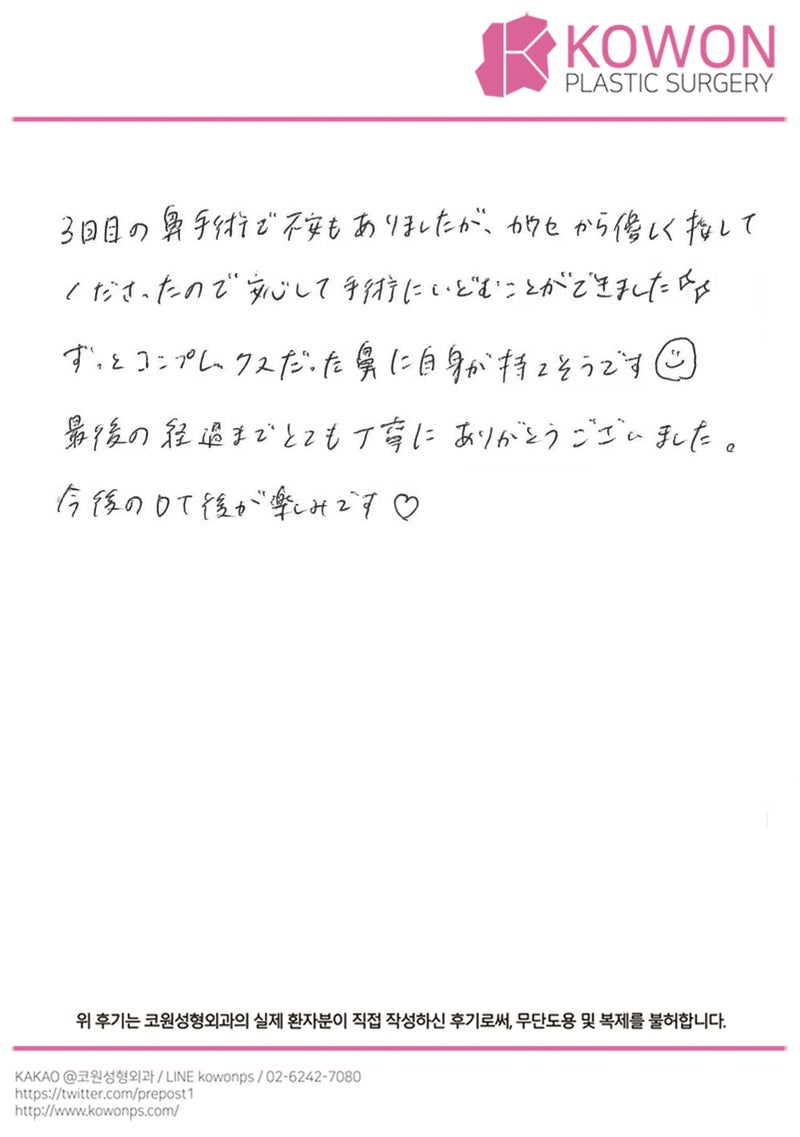 KOWON
PLASTIC SURGERY
3回目の鼻手術で不安もありましたが、カウセから優しく接して
くださったので安心して手術にいどむことができました
ずっとコンプレックスだった鼻に自身が持てそうです
最後の経過までとても丁寧にありがとうございました。
今後のDT後が楽しみです♡
위 후기는 코원성형외과의 실제 환자분이 직접 작성하신 후기로써, 무단도용 및 복제를 불허합니다.
KAKAO @코원성형외과 / LINE kowonps / 02-6242-7080
https://twitter.com/prepost1
http://www.kowonps.com/